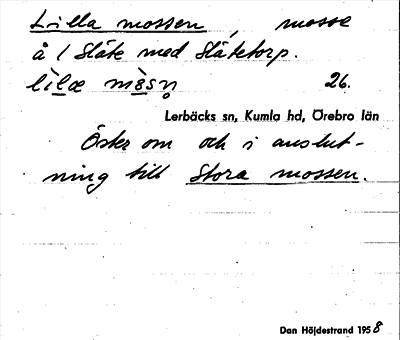 Lilla mossen, mosse
å 1 Släte med Slätetorp.
26.
Lerbäcks sn, Kumla hd, Örebro län
Öster om och i anslut-
ning till Stora mossen.
Dan Höjdestrand 1958